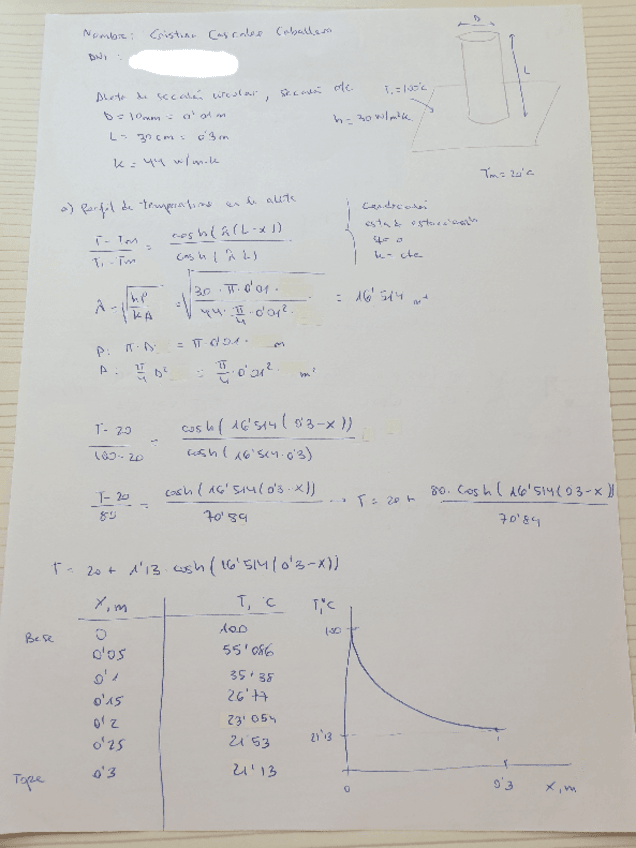 Nombre: Cristina Cascales Caballero
DNI:
Aleta de sección circular, sección cte.
D = 10mm = 0'01m
L = 30cm = 0'3m
k = 44 w/m·k
h = 30 w/m²k
T₁ = 100°C
D
L
T∞ = 20°C
a) Perfil de temperaturas en la aleta
T - T∞ / T₁ - T∞ = cosh(λ(L-x)) / cosh(λL)
Conducción
estado estacionario
k = cte
λ = √(hP / kA) = √(30·π·0'01 / 44·π/4·0'01²) = 16'514 m⁻¹
P: π·D = π·0'01 m
A: π/4 D² = π/4·0'01² m²
T-20 / 100-20 = cosh(16'514(0'3-x)) / cosh(16'514·0'3)
T-20 / 80 = cosh(16'514(0'3-x)) / 70'89 → T = 20 + 80·cosh(16'514(0'3-x)) / 70'89
T = 20 + 1'13·cosh(16'514(0'3-x))
x, m T, °C
Base 0 100
0'05 55'086
0'1 35'38
0'15 26'77
0'2 23'054
0'25 21'53
Tope 0'3 21'13
T, °C
100
21'13
0 0'3 x, m